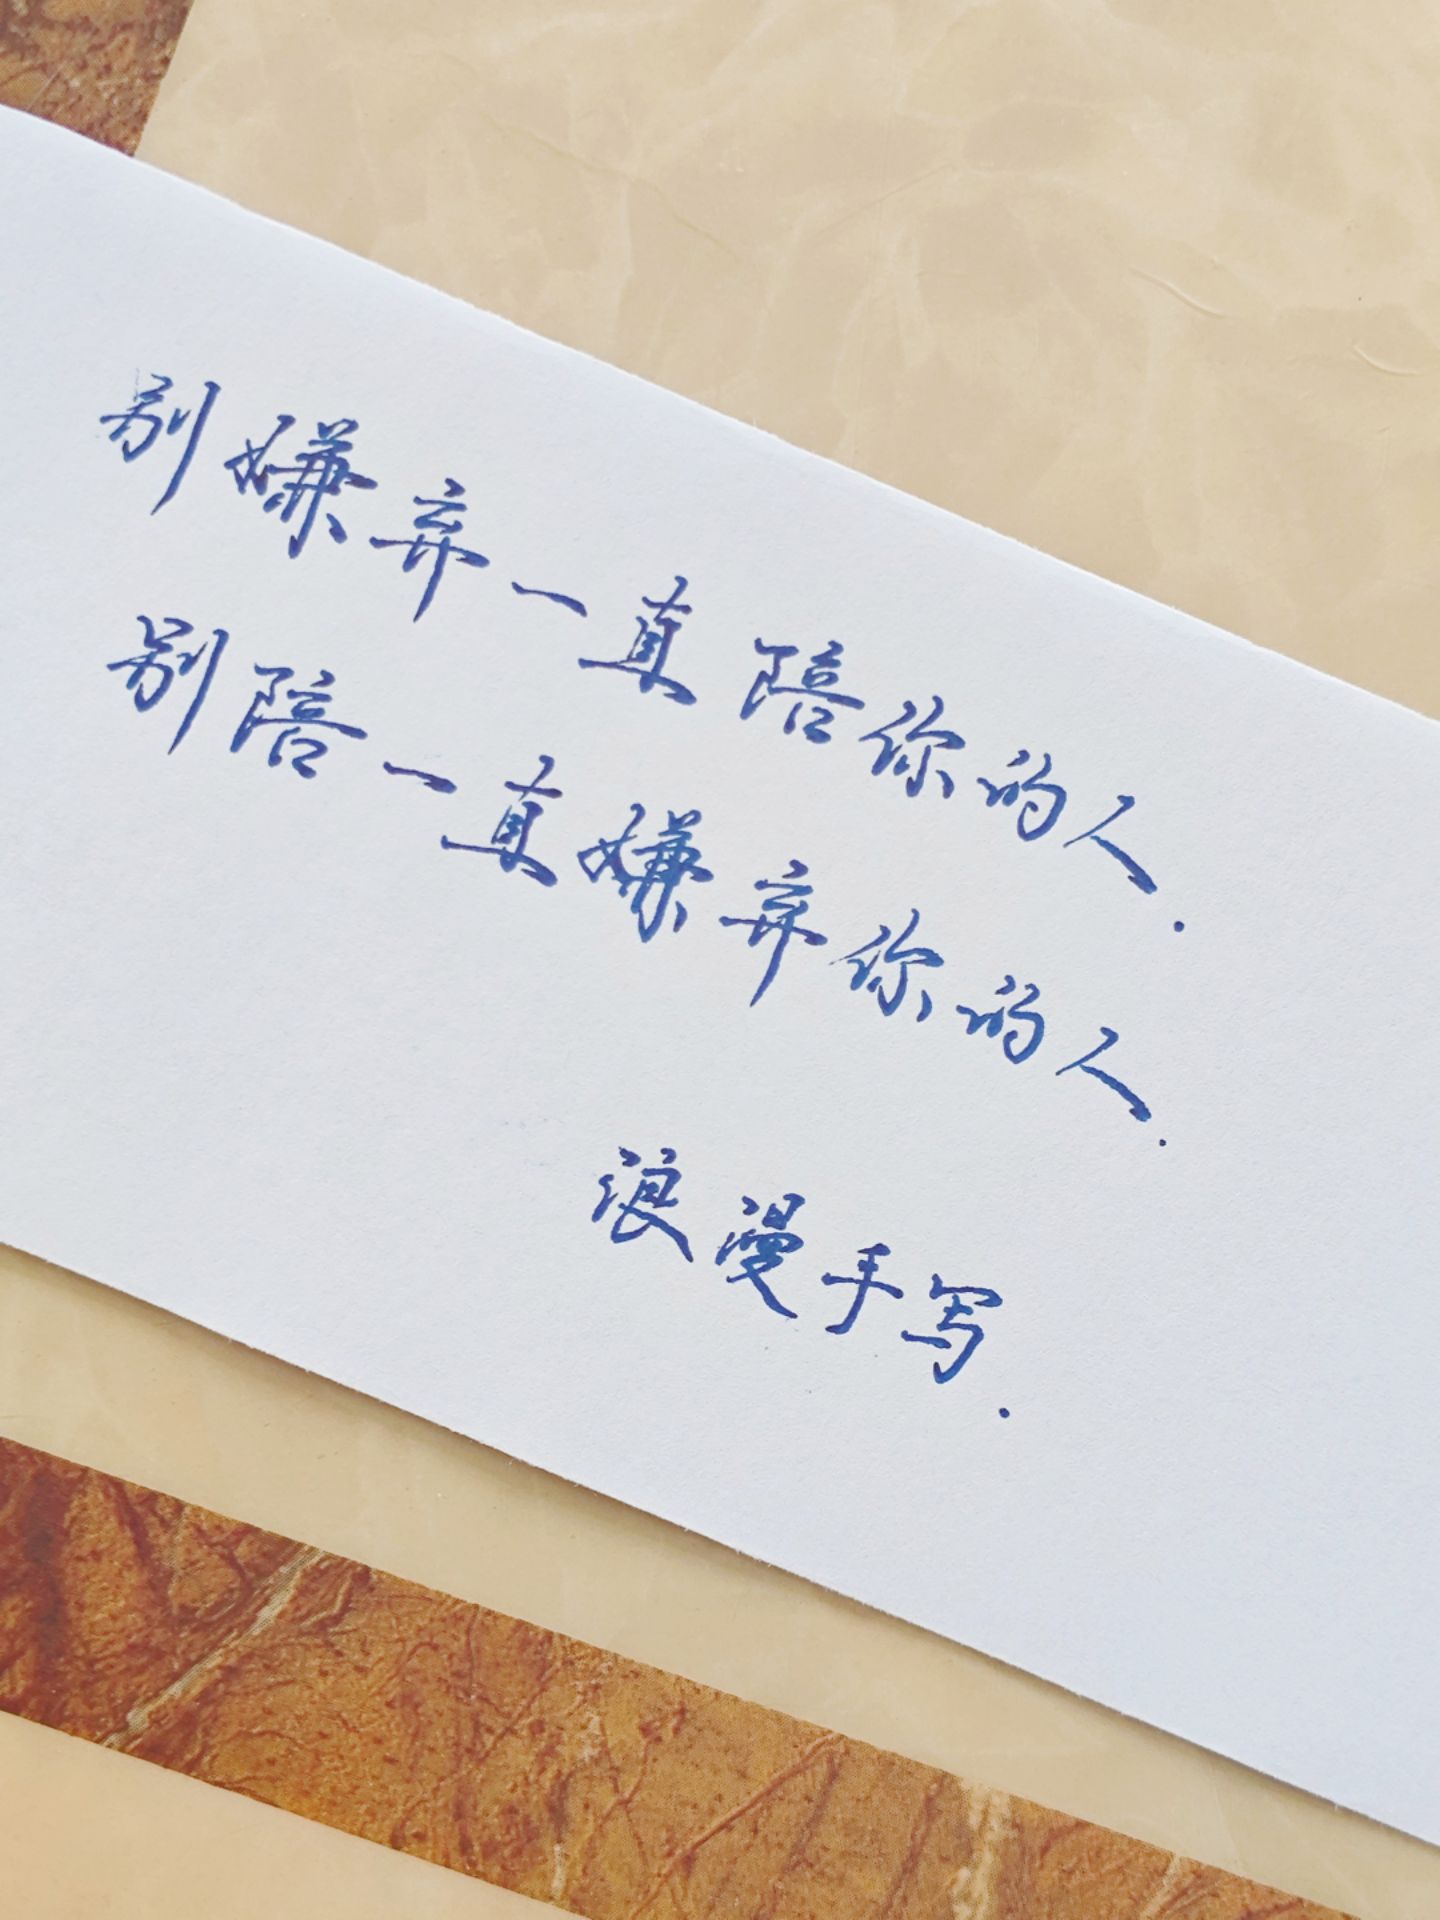 别嫌弃一直陪你的人.
别陪一直嫌弃你的人.
浪漫手写.